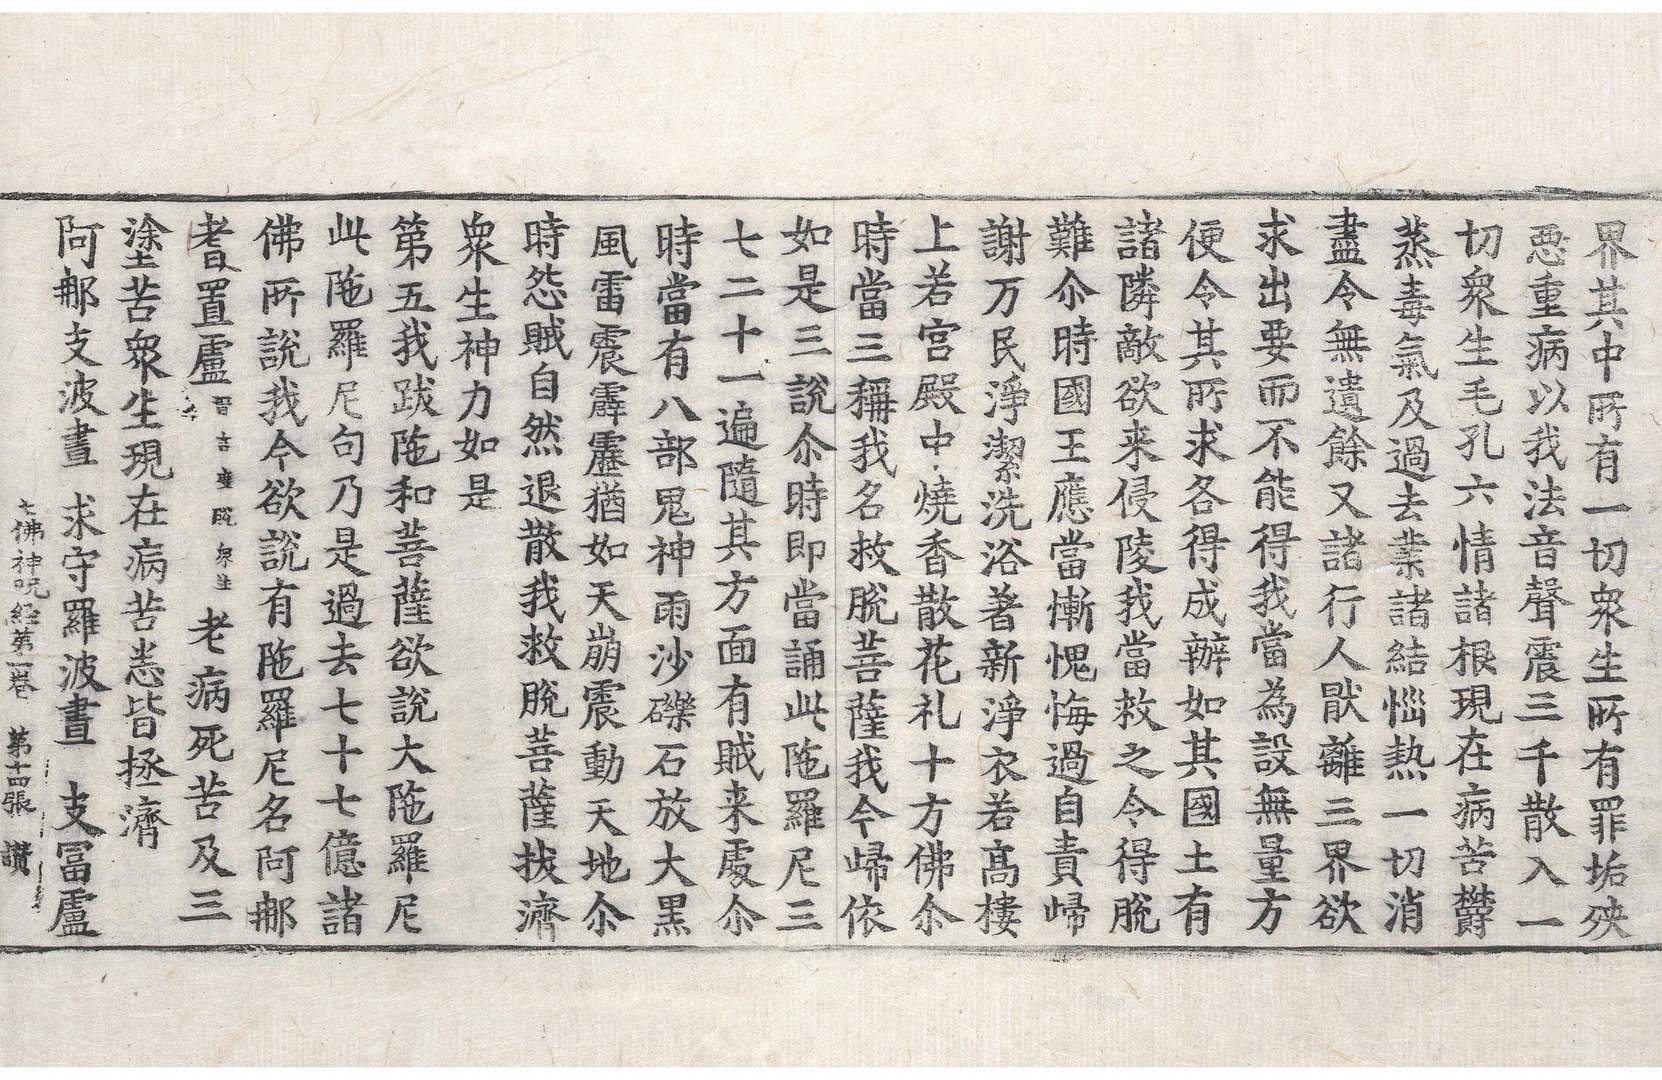 界其中所有一切衆生所有罪垢殃
惡重病以我法音聲震三千散入一
切衆生毛孔六情諸根現在病苦欝
蒸毒氣及過去業諸結惱熱一切消
盡令無遺餘又諸行人猒離三界欲
求出要而不能得我當為設無量方
便令其所求各得成辦如其國土有
諸隣敵欲来侵陵我當救之令得脫
難尒時國王應當慚愧悔過自責歸
謝万民淨潔洗浴著新淨衣若高樓
上若宮殿中燒香散花礼十方佛尒
時當三稱我名救脫菩薩我今歸依
如是三說尒時即當誦此陁羅尼三
七二十一遍隨其方面有賊来處尒
時當有八部鬼神雨沙礫石放大黑
風雷震霹靂猶如天崩震動天地尒
時怨賊自然退散我救脫菩薩拔濟
衆生神力如是
第五我跋陁和菩薩欲說大陁羅尼
此陁羅尼句乃是過去七十七億諸
佛所說我今欲說有陁羅尼名阿郍
耆置盧晉言度脫衆生老病死苦及三
塗苦衆生現在病苦悉皆拯濟
阿郍支波晝 求守羅波晝 支冨盧
七佛神呪経第一卷 第十四張 讃